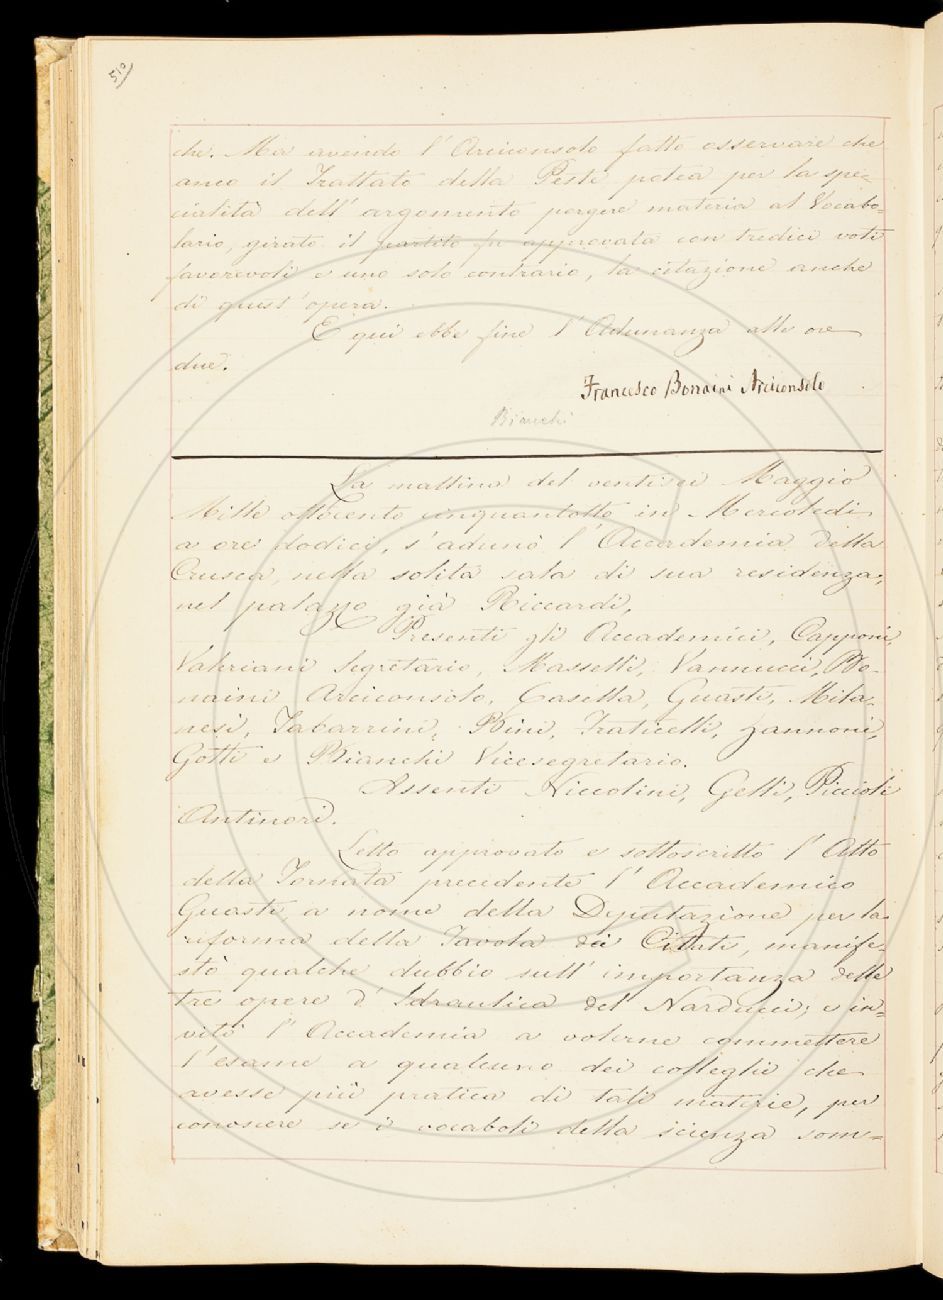 510
che. Ma avendo l'Arciconsolo fatto osservare che
anco il Trattato della Peste potea per la spe=
cialità dell'argomento porgere materia al Vocabo=
lario, girato il partito fu approvata con tredici voti
favorevoli e uno solo contrario, la citazione anche
di quest'opera.
E qui ebbe fine l'Adunanza alle ore
due.
Francesco Bonaini Arciconsolo
Bianchi
La mattina del ventisei Maggio
Mille ottocento cinquantotto in Mercoledì
a ore dodici, s'adunò l'Accademia della
Crusca, nella solita sala di sua residenza,
nel palazzo già Riccardi.
Presenti gli Accademici, Capponi,
Valeriani Segretario, Masselli, Vannucci, Bo-
naini Arciconsolo, Casella, Guasti, Mila-
nesi, Tabarrini, Bini, Fraticelli, Zannoni,
Gotti e Bianchi Vicesegretario.
Assenti Niccolini, Gelli, Piccioli
Antinori.
Letto approvato e sottoscritto l'Atto
della Tornata precedente l'Accademico
Guasti, a nome della Deputazione per la
riforma della Tavola dei Citati, manife=
stò qualche dubbio sull'importanza delle
tre opere d'Idraulica del Narducci; e in=
vitò l'Accademia a volerne commettere
l'esame a qualcuno dei colleghi che
avesse più pratica di tali materie, per
conoscere se i vocaboli della scienza som=